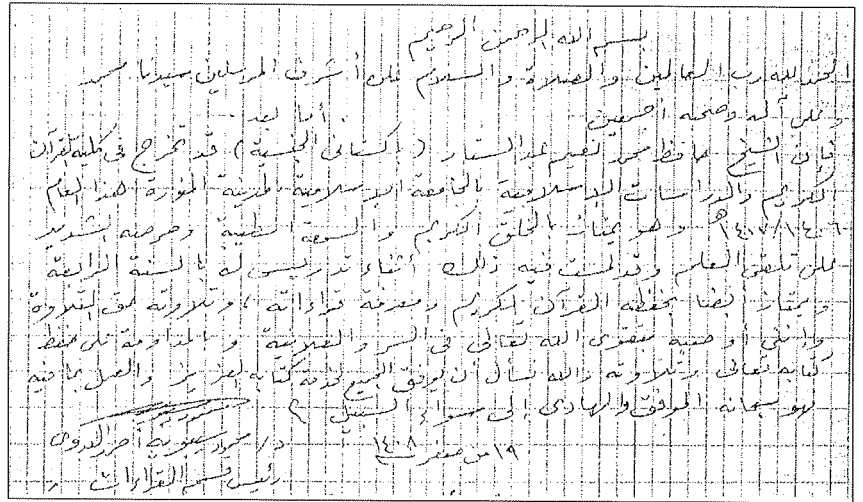 بسم الله الرحمن الرحيم
الحمد لله رب العالمين والصلاة والسلام على أشرف المرسلين سيدنا محمد
وعلى آله وصحبه أجمعين . أما بعد .
فإن الشيخ حافظ محمد نعيم عبد الستار ( باكستانى الجنسية ) قد تخرج فى كلية القرآن
الكريم والدراسات الإسلامية بالجامعة الإسلامية بالمدينة المنورة هذا العام
١٤٠٧/١٤٠٦ هـ وهو يمتاز بالخلق الكريم والسمعة الطيبة وحرصه الشديد
على تلقى العلم وقد لمست فيه ذلك أثناء تدريسى له بالسنة الرابعة
ويمتاز أيضا بحفظه القرآن الكريم ومعرفة قراءاته ، وتلاوته حق التلاوة
وإننى أوصيه بتقوى الله تعالى فى السر والعلانية وبالمداومة على حفظ
كتابه تعالى وتلاوته والله نسأل أن يوفق الجميع لخدمة كتابه العزيز والعمل بما فيه
فهو سبحانه الموفق والهادى إلى سواء السبيل
١٩ من صفر ١٤٠٨
د/ محمود سيبويه أحمد البدوى
رئيس قسم القراءات